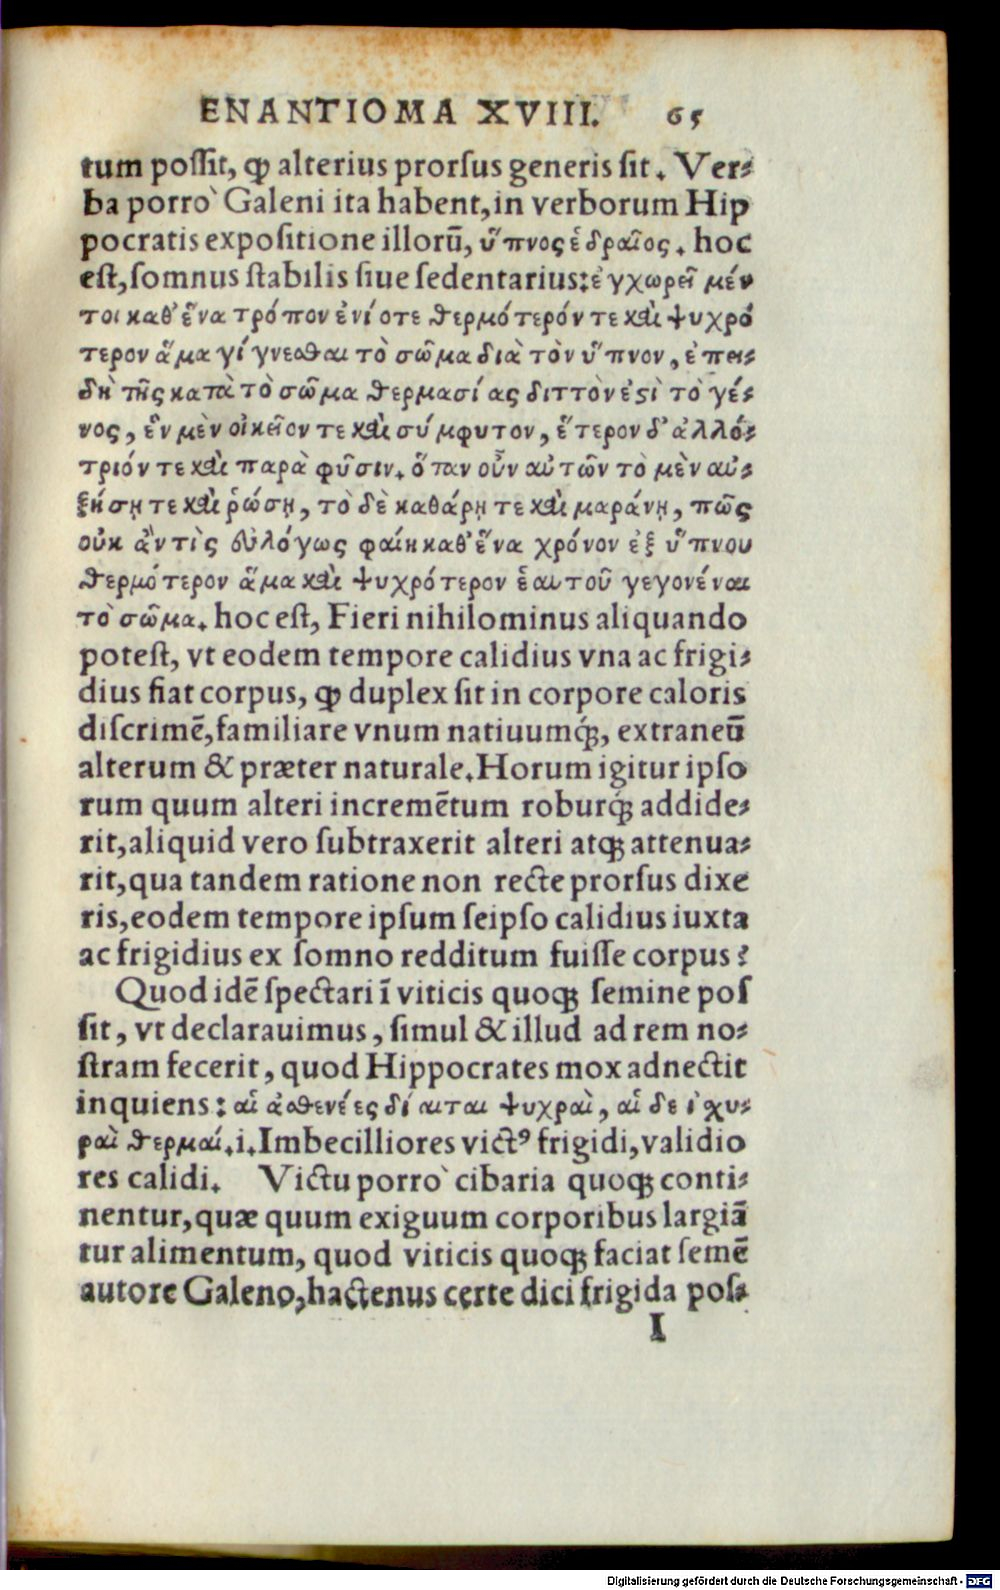 ENANTIOMA XVIII. 65
tum poſſit, ꝙ alterius prorſus generis ſit. Ver-
ba porrò Galeni ita habent, in verborum Hip
pocratis expoſitione illorū, ὕπνος ἑδραῖος. hoc
eſt, ſomnus ſtabilis ſiue ſedentarius: ἐγχωρεῖ μέν
τοι καθ᾽ ἕνα τρόπον ἐνίοτε θερμότερόν τε καὶ ψυχρό
τερον ἅμα γίγνεσθαι τὸ σῶμα διὰ τὸν ὕπνον, ἐπει-
δὴ τῆς κατὰ τὸ σῶμα θερμασίας διττὸν ἐστὶ τὸ γέ-
νος, ἓν μὲν οἰκεῖον τε καὶ σύμφυτον, ἕτερον δ᾽ ἀλλό-
τριόν τε καὶ παρὰ φῦσιν. ὅταν οὖν αὐτῶν τὸ μὲν αὐ-
ξήσῃ τε καὶ ῥώσῃ, τὸ δὲ καθάρῃ τε καὶ μαράνῃ, πῶς
οὐκ ἄν τὶς εὐλόγως φαίη καθ᾽ ἕνα χρόνον ἐξ ὕπνου
θερμότερον ἅμα καὶ ψυχρότερον ἑαυτοῦ γεγονέναι
τὸ σῶμα. hoc eſt, Fieri nihilominus aliquando
poteſt, vt eodem tempore calidius vna ac frigi-
dius fiat corpus, ꝙ duplex ſit in corpore caloris
diſcrimē, familiare vnum natiuumq́ꝫ, extraneū
alterum & præter naturale. Horum igitur ipſo
rum quum alteri incremētum roburq́ꝫ addide-
rit, aliquid vero ſubtraxerit alteri atqꝫ attenua-
rit, qua tandem ratione non recte prorſus dixe
ris, eodem tempore ipſum ſeipſo calidius iuxta
ac frigidius ex ſomno redditum fuiſſe corpus?
Quod idē ſpectari ī viticis quoqꝫ ſemine poſ
ſit, vt declarauimus, ſimul & illud ad rem no-
ſtram fecerit, quod Hippocrates mox adnectit
inquiens: αἱ ἀσθενέες δίαιται ψυχραὶ, αἱ δε ἰχυ-
ραὶ θερμαί. i. Imbecilliores victꝰ frigidi, validio
res calidi. Victu porrò cibaria quoqꝫ conti-
nentur, quæ quum exiguum corporibus largiā
tur alimentum, quod viticis quoqꝫ faciat ſemē
autore Galeno, hactenus certe dici frigida poſ-
I
Digitalisierung gefördert durch die Deutsche Forschungsgemeinschaft - DFG